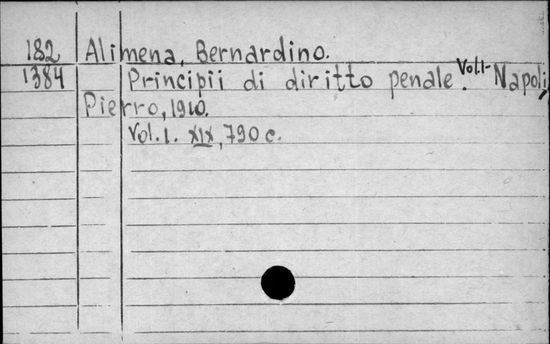 182 Alimena, Bernardino.
1384 Principii di diritto penale. Vol.1- Napoli,
Pierro, 1910.
Vol. 1. XIX, 790 c.